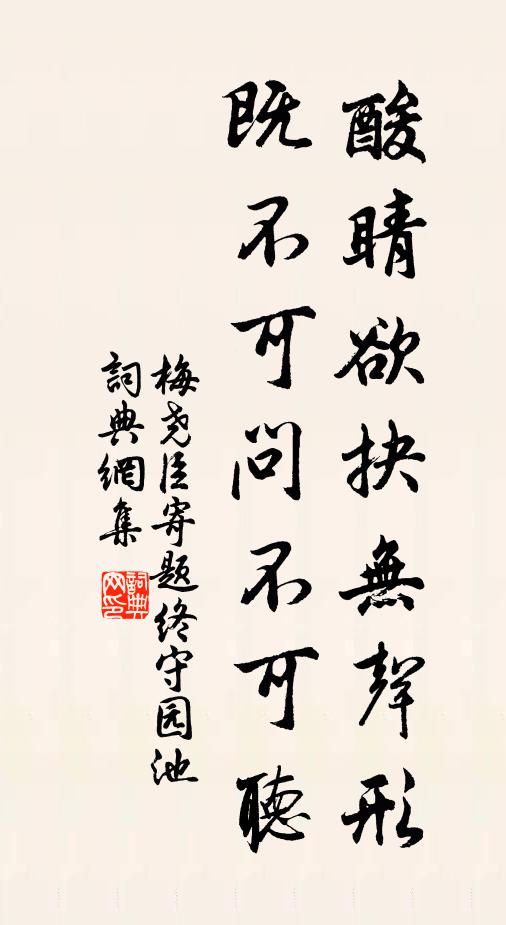 酸睛欲抉無聲形
既不可問不可聽
梅尧臣寄题终守园池
詞典網集
詞典網印